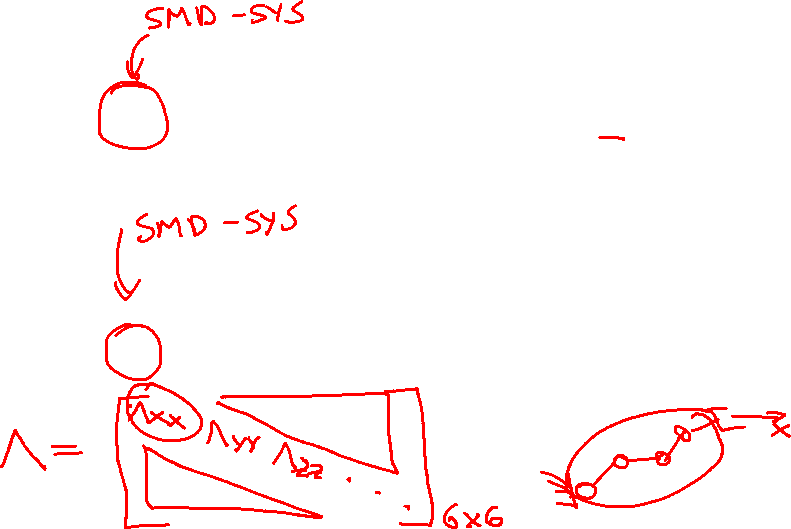 SMD-SYS
SMD-SYS
Λ = [ Λxx Λyy Λzz . . . ] 6x6
x